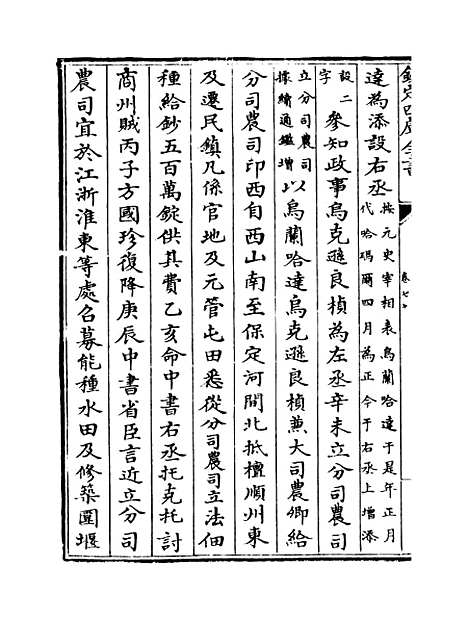 欽定四庫全書
達為添設右丞按元史宰相表烏蘭哈達于是年正月
代哈瑪爾四月為正今于右丞上增添
設二字參知政事烏克遜良楨為左丞辛未立分司農司
立分司農司據續通鑑增以烏蘭哈達烏克遜良楨兼大司農卿給
分司農司印西自西山南至保定河間北抵檀順州東
及遷民鎮凡係官地及元管屯田悉從分司農司立法佃
種給鈔五百萬錠供其費乙亥命中書右丞托克托討
商州賊丙子方國珍復降庚辰中書省臣言近立分司
農司宜於江浙淮東等處召募能種水田及修築圍堰